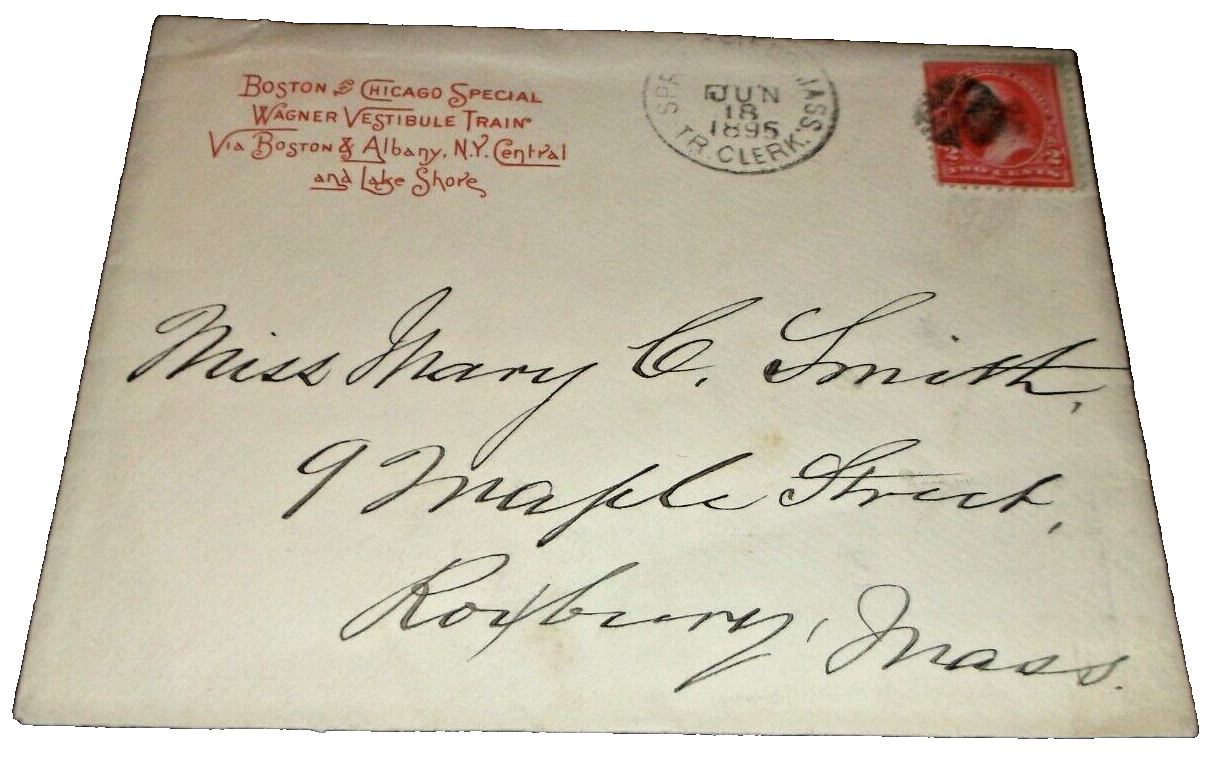 BOSTON AND CHICAGO SPECIAL
WAGNER VESTIBULE TRAIN
VIA BOSTON & Albany, N.Y. Central
and Lake Shore
MASS.
JUN
18
1895
TR. CLERK.
2 2
TWO CENTS
Miss Mary C. Smith,
9 Maple Street,
Roxbury, Mass.